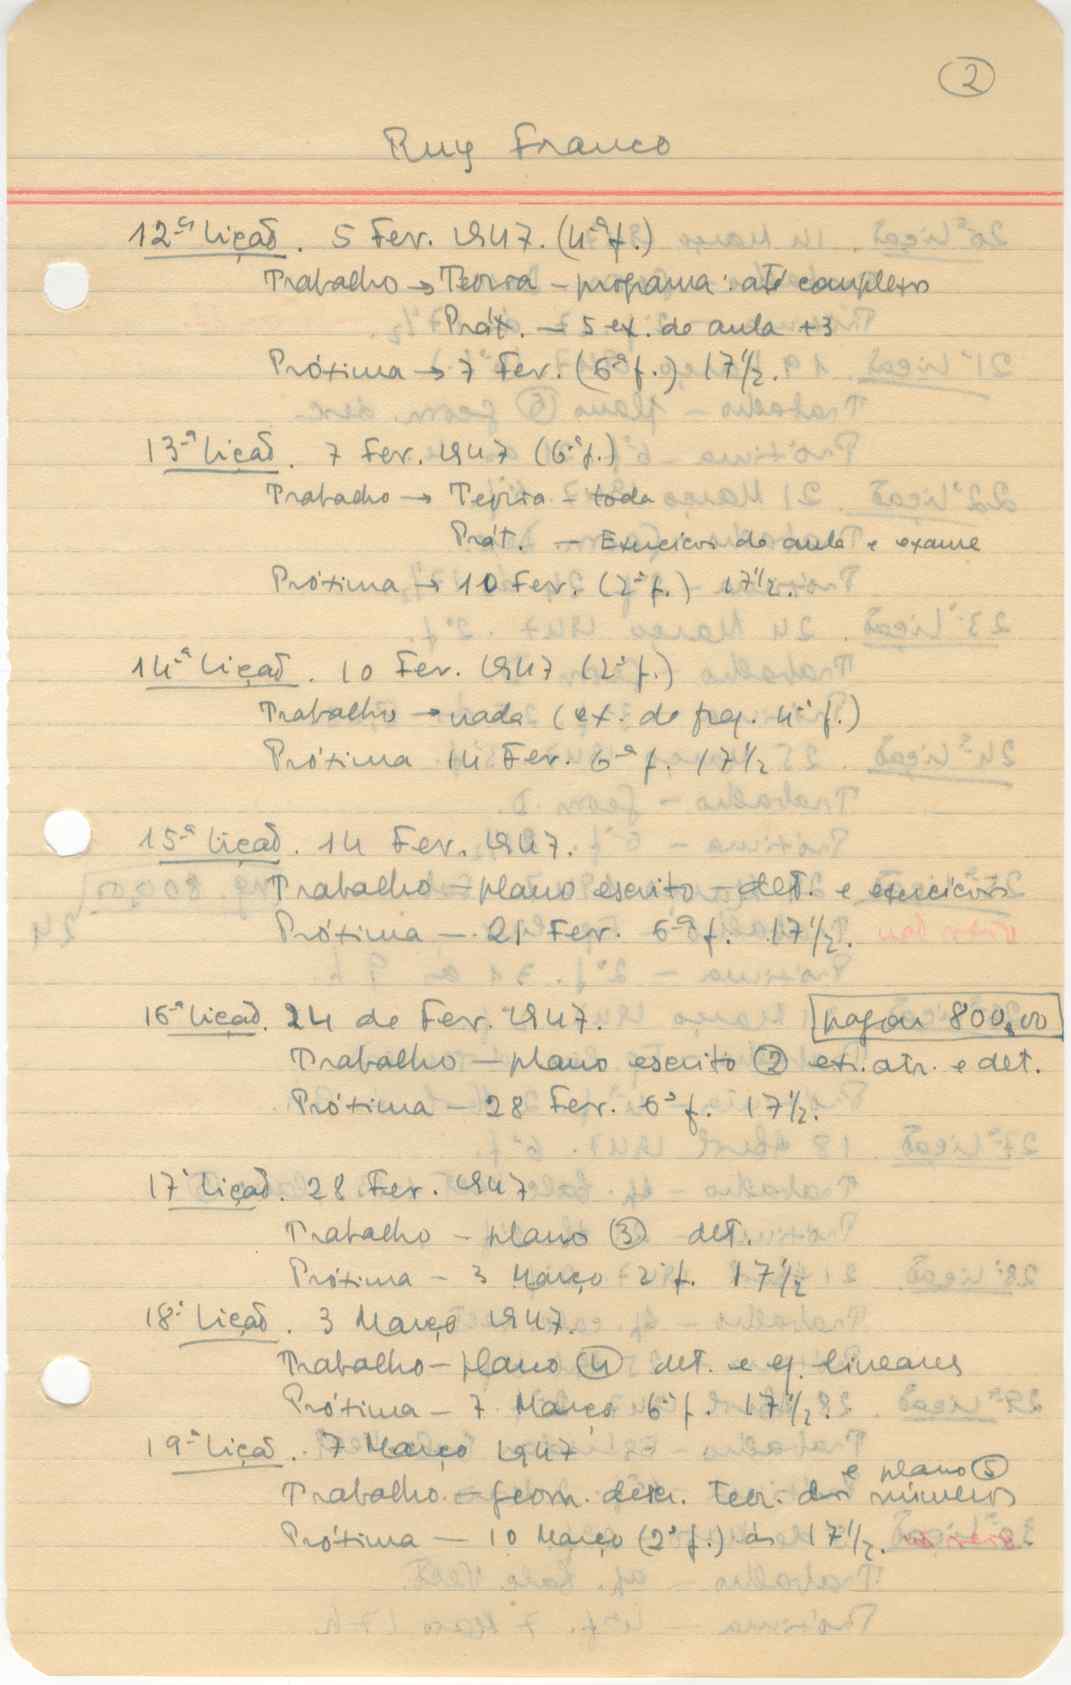 2
Ruy Franco
12ª Lição. 5 Fev. 1947. (4ª f.)
Trabalho → Teoria - programa: até complexos
Prát. → 5 ex. de aula + 3
Próxima → 7 Fev. (6ª f.) 17 1/2.
13ª Lição. 7 Fev. 1947 (6ª f.)
Trabalho → Teoria - toda
Prát. - Exercícios de aula e exame
Próxima → 10 Fev. (2ª f.) 17 1/2.
14ª Lição. 10 Fev. 1947 (2ª f.)
Trabalho → nada (ex. de freq. 4ª f.)
Próxima 14 Fev. 6ª f. 17 1/2
15ª Lição. 14 Fev. 1947.
Trabalho - plano escrito - det. e exercícios
Próxima - 21 Fev. 6ª f. 17 1/2.
16ª Lição. 24 de Fev. 1947. pagou 800,00
Trabalho - plano escrito 2 ex. atr. e det.
Próxima - 28 Fev. 6ª f. 17 1/2.
17ª Lição. 28 Fev. 1947
Trabalho - plano 3 det.
Próxima - 3 Março 2ª f. 17 1/2
18ª Lição. 3 Março 1947.
Trabalho - plano 4 det. e eq. lineares
Próxima - 7 Março 6ª f. 17 1/2.
19ª Lição. 7 Março 1947
e plano 5
Trabalho - geom. descr. Teor. dos números
Próxima - 10 Março (2ª f.) às 17 1/2.